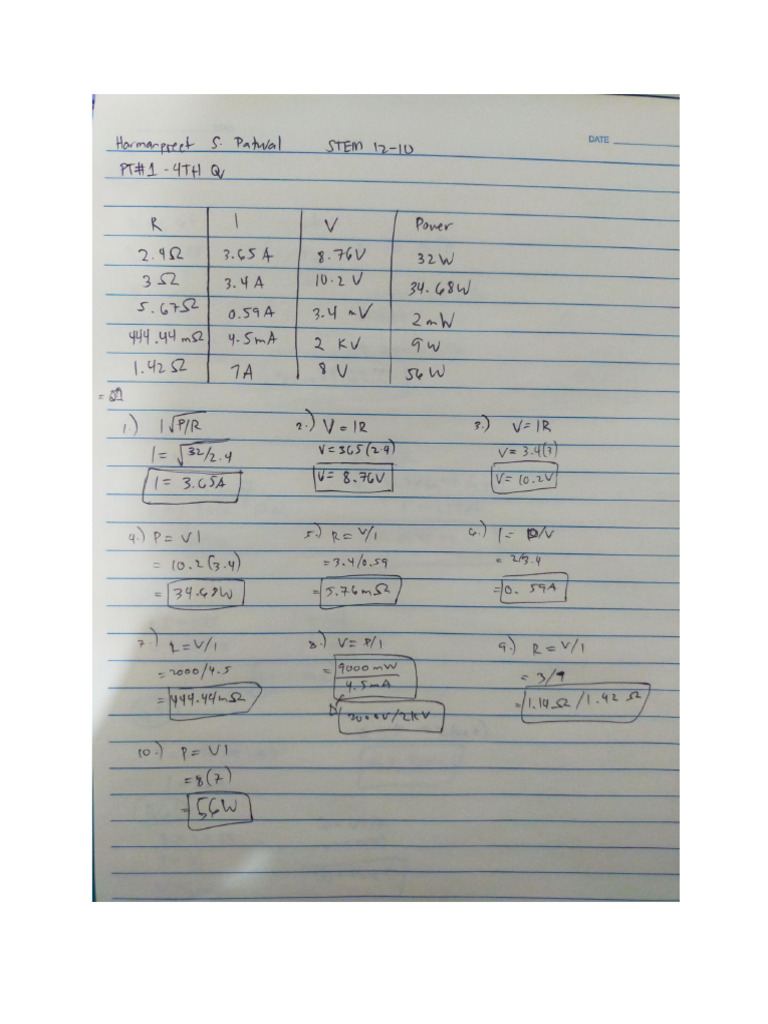 Harmanpreet S. Patwal STEM 12-10 DATE
PT#1 - 4TH Q
R I V Power
2.4Ω 3.65 A 8.76V 32W
3 Ω 3.4 A 10.2 V 34.68W
5.67Ω 0.59A 3.4 mV 2mW
444.44mΩ 4.5mA 2 KV 9W
1.42Ω 7A 8 V 56W
1.) I√P/R 2.) V=IR 3.) V=IR
I= √32/2.4 V=365(2.4) V= 3.4(3)
I= 3.65A V= 8.76V V= 10.2V
4.) P= VI 5.) R= V/I 6.) I= P/V
= 10.2(3.4) =3.4/0.59 = 2/3.4
= 34.68W =5.76mΩ =0.59A
7.) R=V/I 8.) V= P/I 9.) R = V/I
=2000/4.5 = 9000mW = 8/7
4.5mA
=444.44mΩ 2000V/2KV =1.14Ω/1.42 Ω
10.) P= VI
=8(7)
= 56W